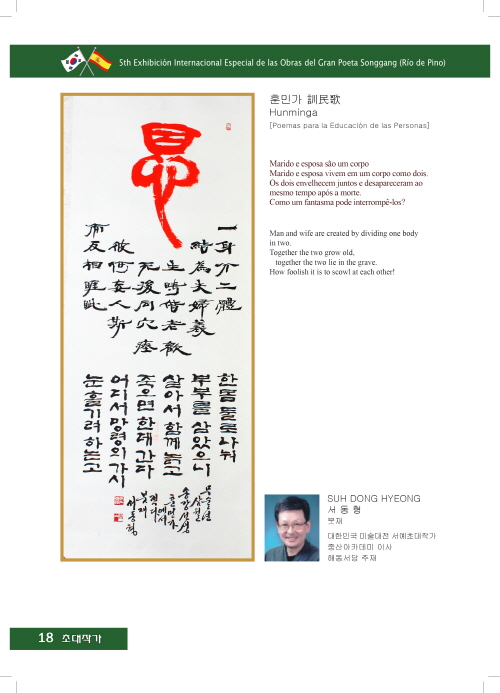 5th Exhibición Internacional Especial de las Obras del Gran Poeta Songgang (Río de Pino)
훈민가 訓民歌
Hunminga
[Poemas para la Educación de las Personas]
Marido e esposa são um corpo
Marido e esposa vivem em um corpo como dois.
Os dois envelhecem juntos e desapareceram ao
mesmo tempo após a morte.
Como um fantasma pode interrompê-los?
Man and wife are created by dividing one body
in two.
Together the two grow old,
together the two lie in the grave.
How foolish it is to scowl at each other!
一身分二體
結為夫婦義
生時偕老歡
死後同穴瘞
何妄人斯
而反相睚眦
한몸둘로나눠
부부를삼았으니
살아서함께늙고
죽으면한데간다
어디서망령의가시
눈흘기려하는고
송강선생
훈민가
붓재
서동형
SUH DONG HYEONG
서 동 형
붓재
대한민국 미술대전 서예초대작가
중산아카데미 이사
해동서당 주재
18 초대작가